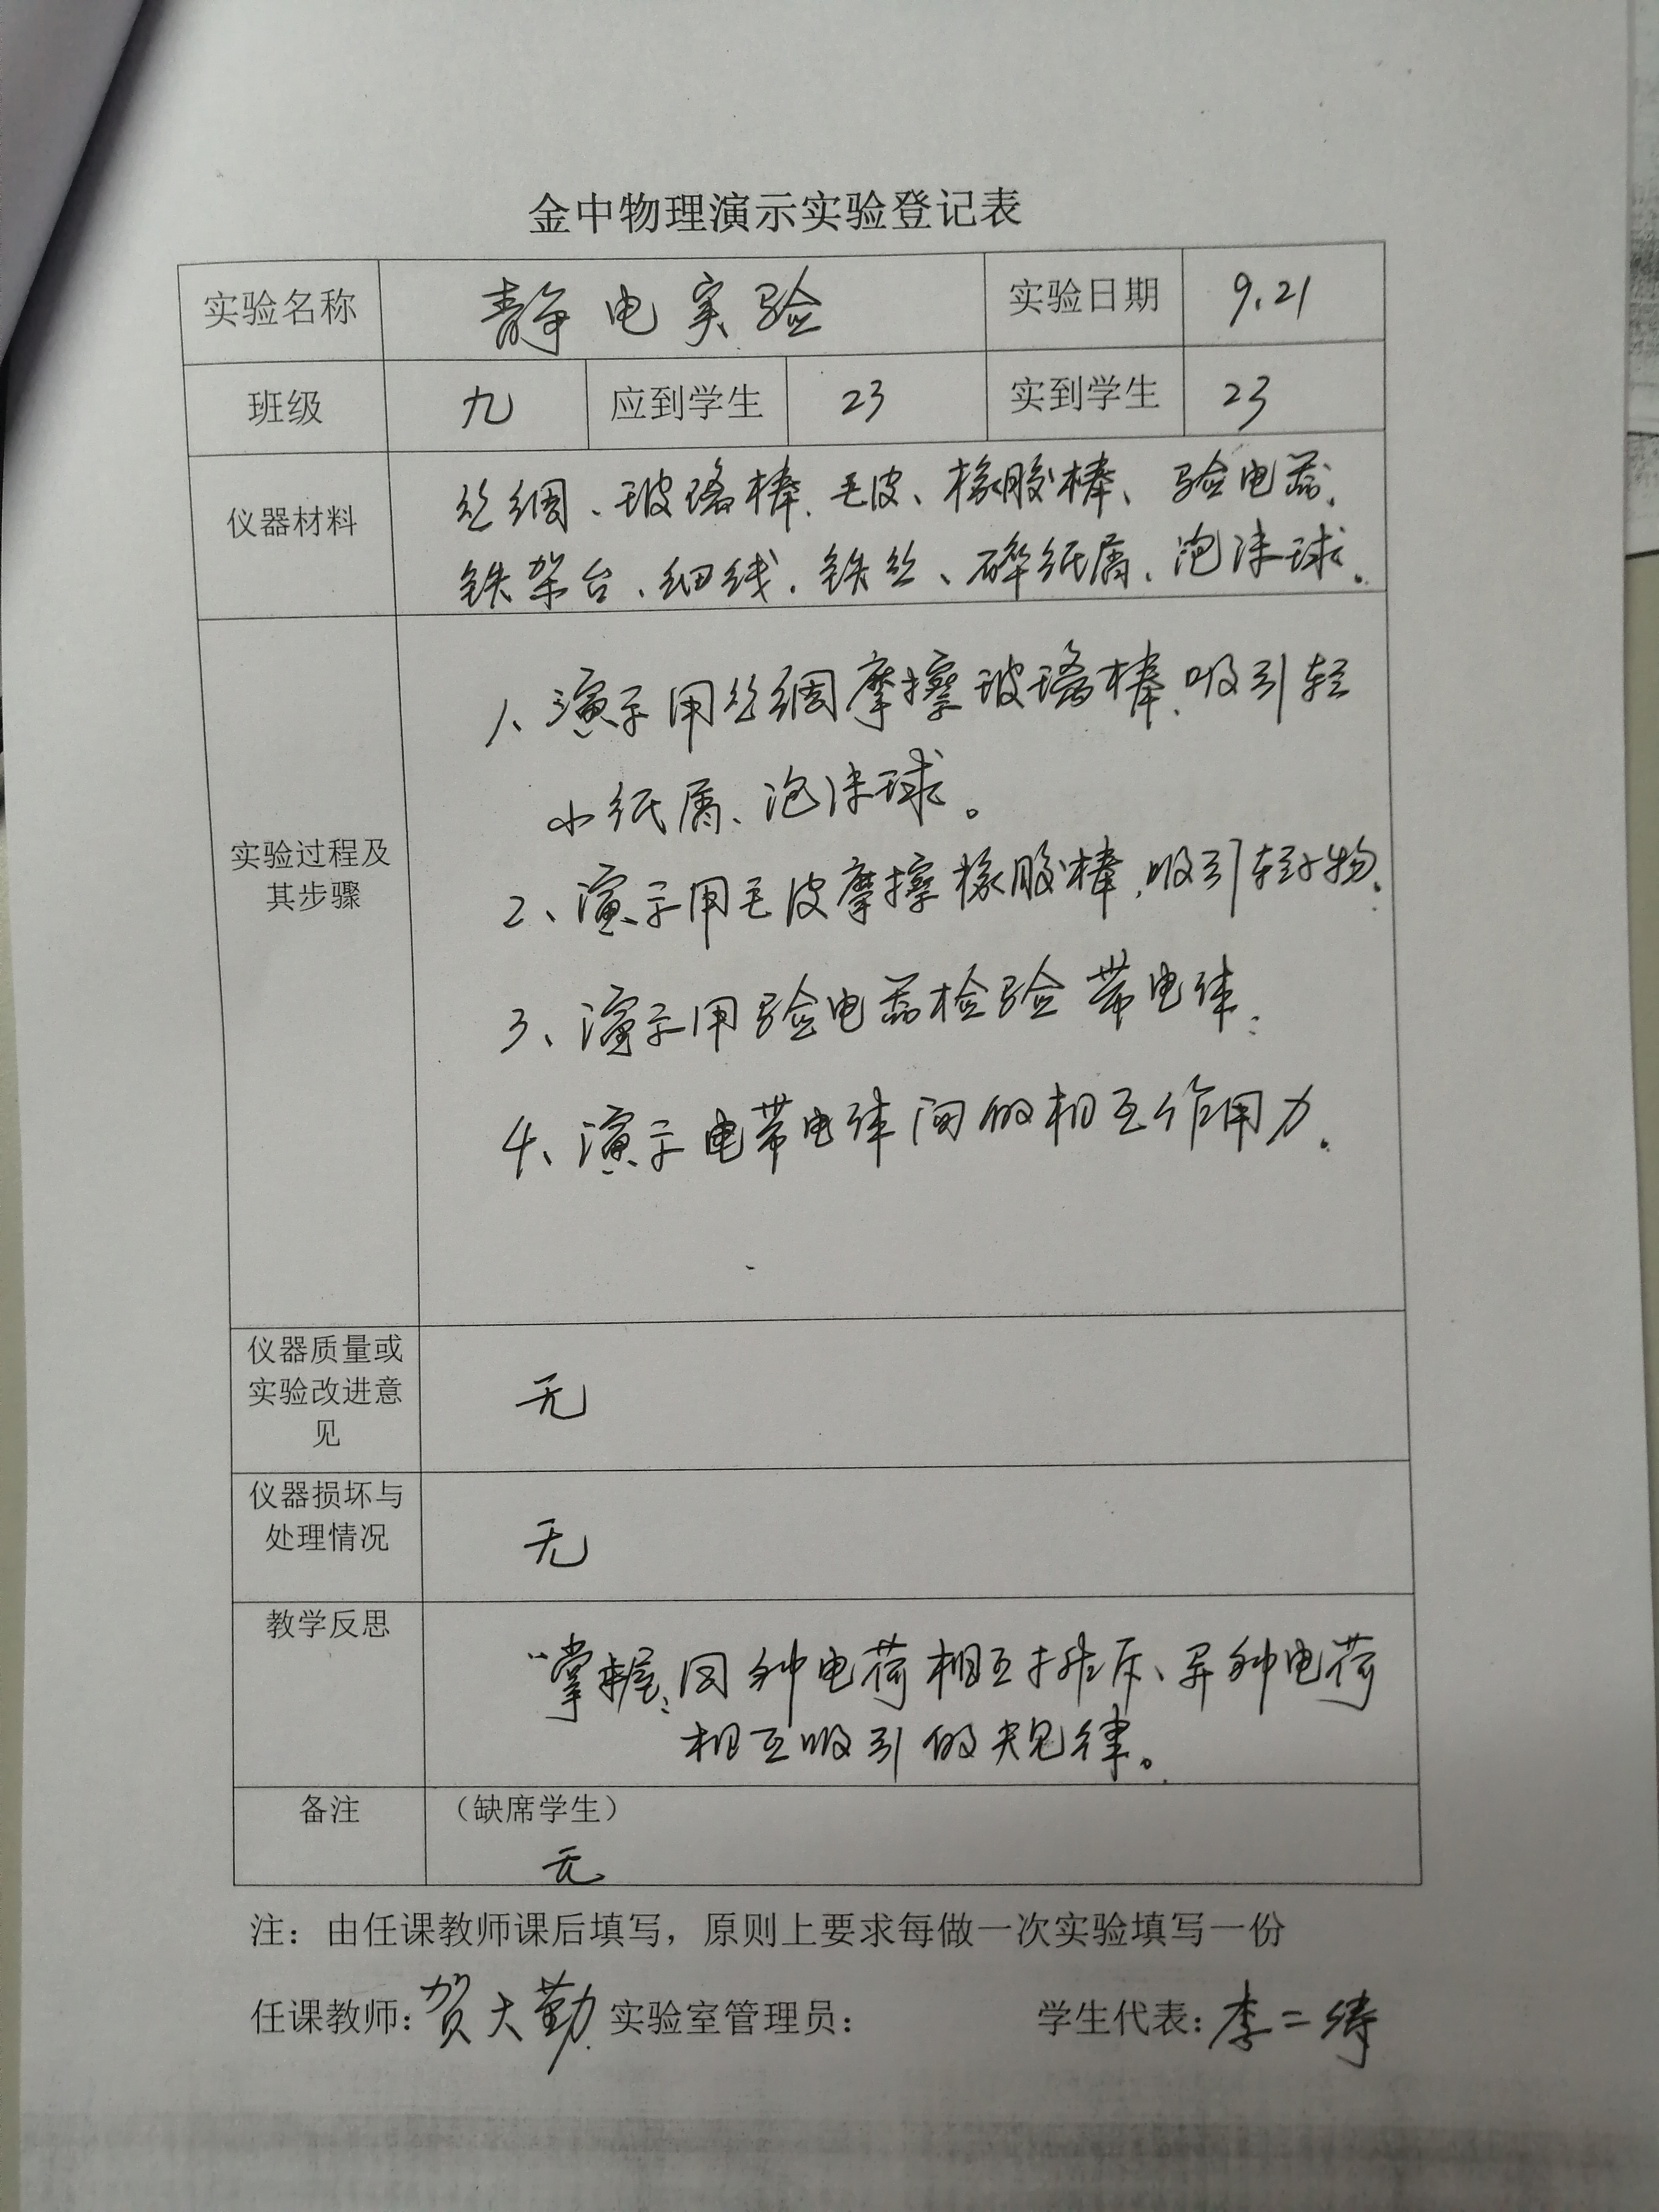 金中物理演示实验登记表
实验名称 静电实验 实验日期 9.21
班级 九 应到学生 23 实到学生 23
仪器材料
丝绸、玻璃棒、毛皮、橡胶棒、验电器、
铁架台、细线、铁丝、碎纸屑、泡沫球。
实验过程及
其步骤
1、演示用丝绸摩擦玻璃棒、吸引轻
小纸屑、泡沫球。
2、演示用毛皮摩擦橡胶棒,吸引轻小物.
3、演示用验电器检验带电体.
4、演示电带电体间的相互作用力.
仪器质量或
实验改进意
见
无
仪器损坏与
处理情况
无
教学反思
掌握:同种电荷相互排斥、异种电荷
相互吸引的规律。
备注 (缺席学生)
无
注:由任课教师课后填写,原则上要求每做一次实验填写一份
任课教师:贺大勤 实验室管理员: 学生代表:李二